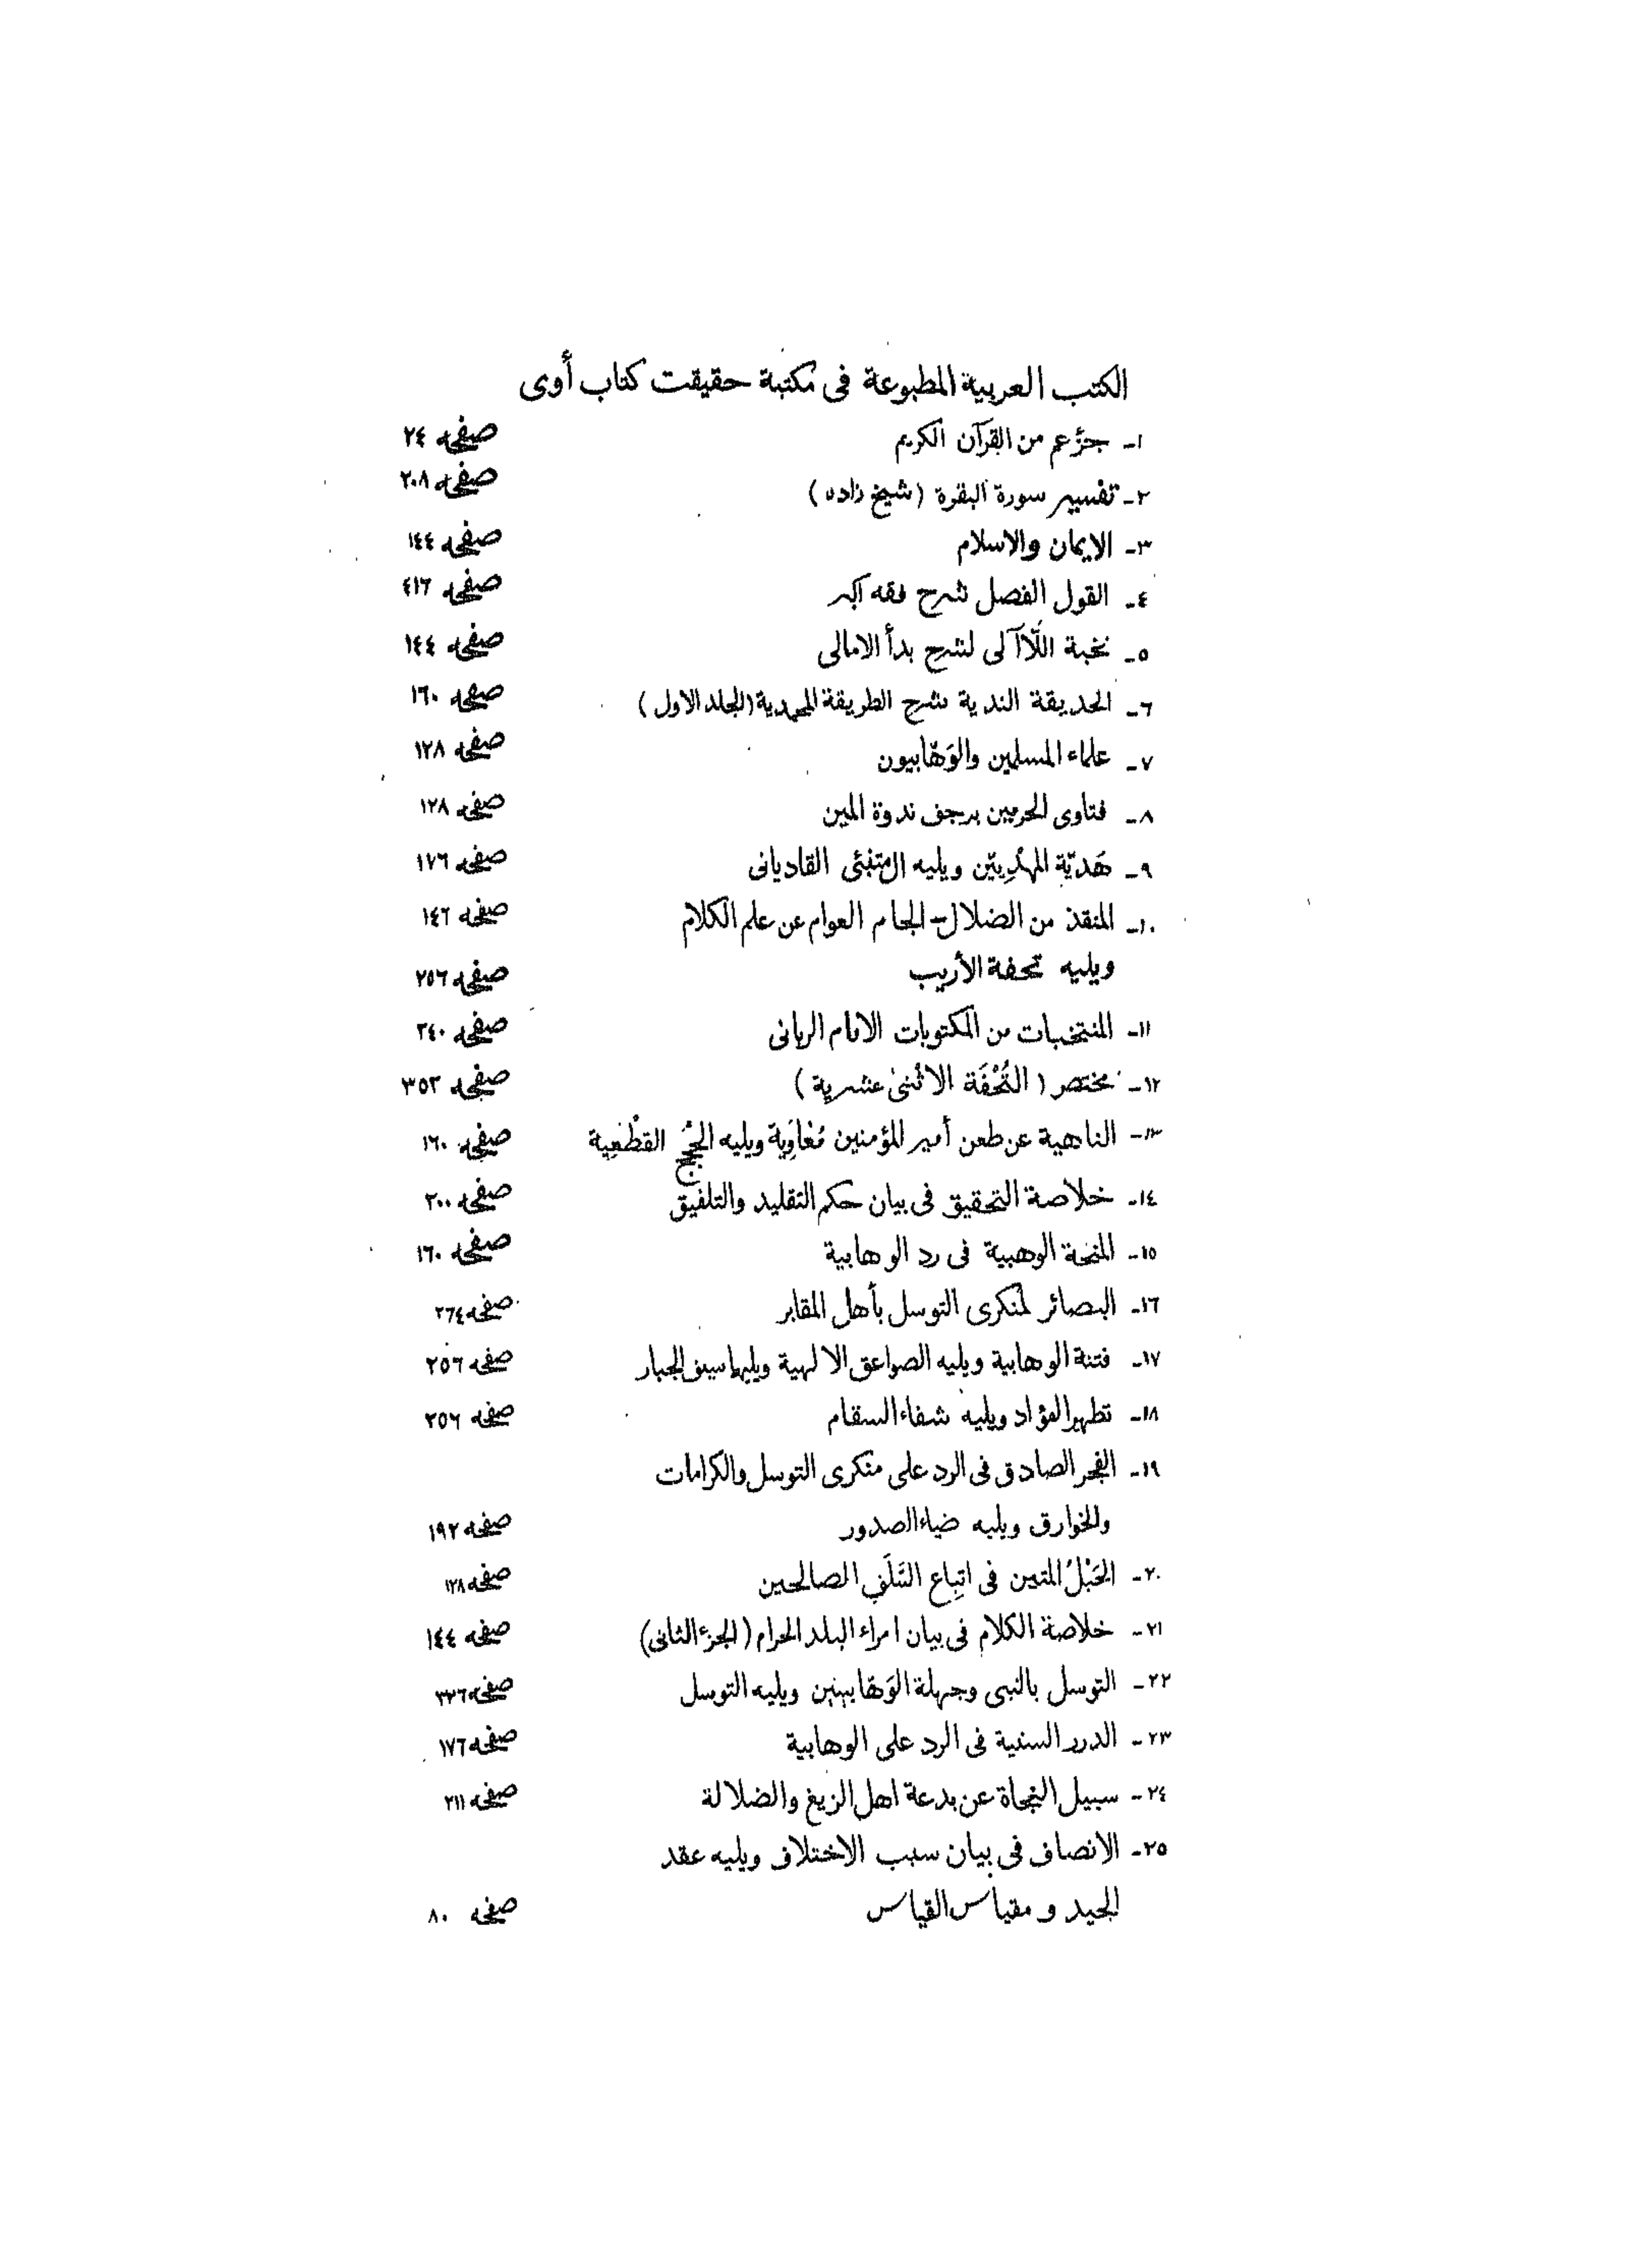 الكتب العربية المطبوعة فى مكتبة حقيقت كتاب أوى
١- جزء عم من القرآن الكريم صفحه ٢٤
٢- تفسير سورة البقرة (شيخ زاده) صفحه ٢٠٨
٣- الايمان والاسلام صفحه ١٤٤
٤- القول الفصل شرح فقه اكبر صفحه ٤١٦
٥- نخبة اللآلى لشرح بدأ الامالى صفحه ١٤٤
٦- الحديقة الندية شرح الطريقة المحمدية (الجلد الاول) صفحه ١٦٠
٧- علماء المسلمين والوَهّابيون صفحه ١٢٨
٨- فتاوى الحرمين برجف ندوة المين صفحه ١٢٨
٩- هَديّة المهْدِيّين ويليه المتنبئ القاديانى صفحه ١٧٦
١٠- المنقذ من الضلال - الجام العوام عن علم الكلام صفحه ١٤٦
ويليه تحفة الأريب صفحه ٢٥٦
١١- المنتخبات من المكتوبات الامام الربانى صفحه ٢٤٠
١٢- مختصر (التُحْفَة الاثْنىْ عشرية) صفحه ٣٥٢
١٣- الناهية عن طعن أمير المؤمنين مُعَاوِيَة ويليه الحُجَج القطْعِية صفحه ١٦٠
١٤- خلاصة التحقيق فى بيان حكم التقليد والتلفيق صفحه ٢٠٠
١٥- المنحة الوهبية فى رد الوهابية صفحه ١٦٠
١٦- البصائر لمنكرى التوسل بأهل المقابر صفحه ٢٦٤
١٧- فتنة الوهابية ويليه الصواعق الالهية ويليها سيف الجبار صفحه ٢٥٦
١٨- تطهير الفؤاد ويليه شفاء السقام صفحه ٢٥٦
١٩- الفجر الصادق فى الرد على منكرى التوسل والكرامات
والخوارق ويليه ضياء الصدور صفحه ١٩٢
٢٠- الحَبْلُ المتين فى اتِباع السَلَفِ الصالحين صفحه ١٢٨
٢١- خلاصة الكلام فى بيان امراء البلد الحرام (الجزء الثانى) صفحه ١٤٤
٢٢- التوسل بالنبى وجهلة الوَهّابيين ويليه التوسل صفحه ٣٣٦
٢٣- الدرر السنية فى الرد على الوهابية صفحه ١٧٦
٢٤- سبيل النجاة عن بدعة اهل الزيغ والضلالة صفحه ٢١١
٢٥- الانصاف فى بيان سبب الاختلاف ويليه عقد
الجيد و مقياس القياس صفحه ٨٠